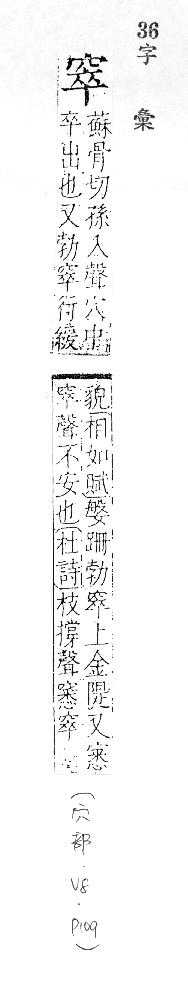 36字彙
窣
蘇骨切孫入聲穴中
卒出也又勃窣行緩
貌相如賦媻跚勃窣上金隄又窸
窣聲不安也杜詩枝撐聲窸窣
(穴部.V8.P109)